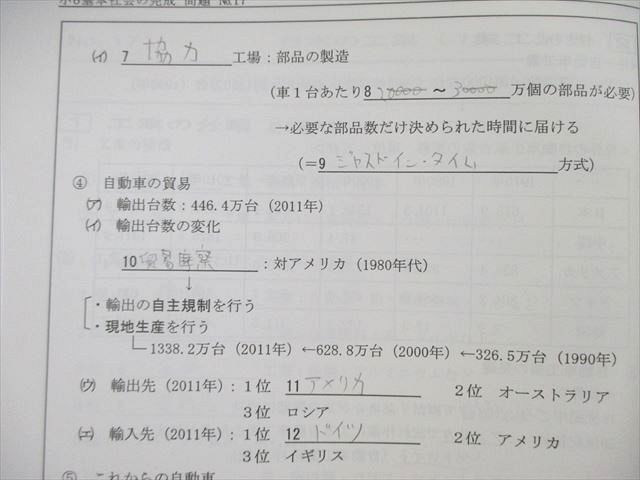 小6基本社会の完成 問題 №17
(イ) 7 協力 工場：部品の製造
(車1台あたり8 20000 ～ 30000 万個の部品が必要)
→必要な部品数だけ決められた時間に届ける
(＝9 ジャストイン・タイム 方式)
④ 自動車の貿易
(ア) 輸出台数：446.4万台 (2011年)
(イ) 輸出台数の変化
10 貿易摩擦 ：対アメリカ (1980年代)
↓
・輸出の自主規制を行う
・現地生産を行う
1338.2万台 (2011年) ←628.8万台 (2000年) ←326.5万台 (1990年)
(ウ) 輸出先 (2011年)：1位 11 アメリカ 2位 オーストラリア
3位 ロシア
(エ) 輸入先 (2011年)：1位 12 ドイツ 2位 アメリカ
3位 イギリス
⑤ これからの自動車